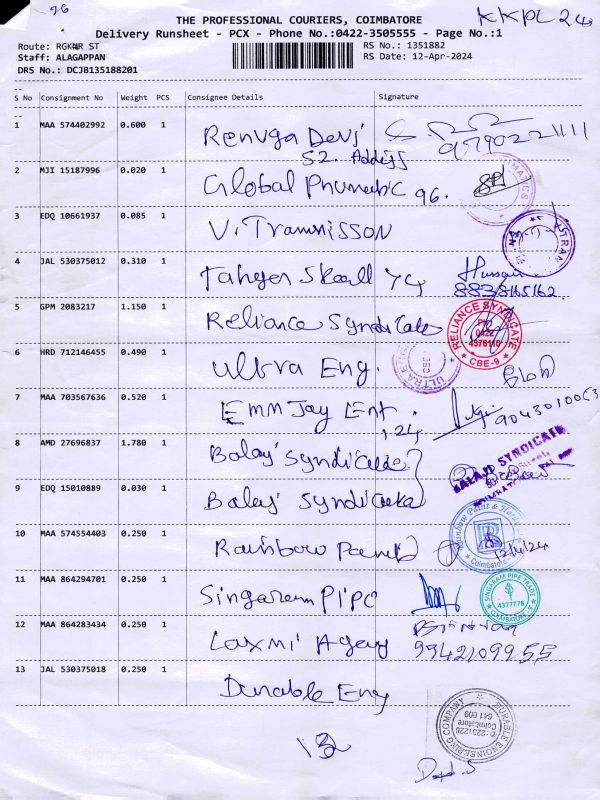 96
KKPL 24
THE PROFESSIONAL COURIERS, COIMBATORE
Delivery Runsheet - PCX - Phone No.:0422-3505555 - Page No.:1
Route: RGKNR ST
RS No.: 1351882
Staff: ALAGAPPAN
RS Date: 12-Apr-2024
DRS No.: DCJB135188201
S No Consignment No Weight PCS Consignee Details Signature
1 MAA 574402992 0.600 1 Renuga Devi 9790221111
52. Addiss
2 MJI 15187996 0.020 1 Global Phumatic 96.
3 EDQ 10661937 0.085 1 V. Tramnisson
4 JAL 530375012 0.310 1 Taher Skall 74 Hussain
8838165162
5 GPM 2083217 1.150 1 Reliance Syndicate
RELIANCE SYNDICATE
0422
4378110
CBE-9
6 HRD 712146455 0.490 1 Ultra Eng.
ULTRA ENG
CBE
7 MAA 703567636 0.520 1 Emm Jay Ent. 9043010063
124
8 AMD 27696837 1.780 1 Balaji Syndicate
BALAJI SYNDICATE
9 EDQ 15010889 0.030 1 Balaji Syndicate
10 MAA 574554403 0.250 1 Rainbow Paint 12/4/24
Rainbow Paints & Hard
Coimbatore
11 MAA 864294701 0.250 1 Singaram Pipe
SINGARAM PIPE TRADE
4377778
COIMBATORE
12 MAA 864283434 0.250 1 Laxmi Agency
9942109955
13 JAL 530375018 0.250 1 Durable Eng
DURABLE ENGINEERING COMPANY
2231228
Coimbatore
641 009
13